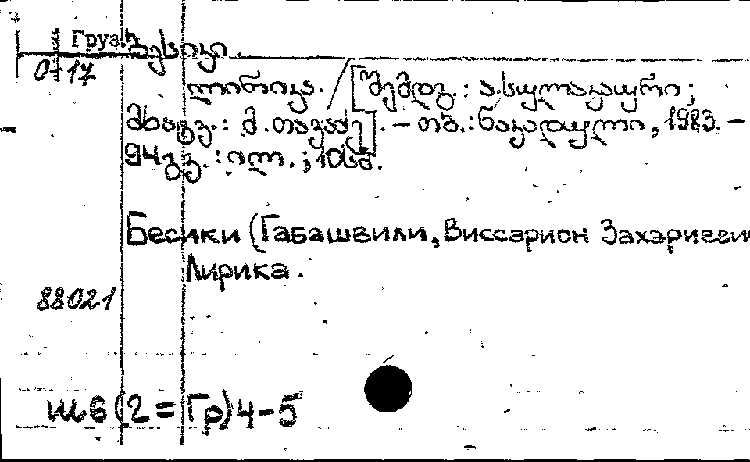 Груз.
ბესიკი.
0-17
ლირიკა. / [შემდგ.: ა. სულაკაური;
მხატვ.: მ. თავაძე]. – თბ.: ნაკადული, 1983. –
94 გვ. : ილ. ; 10სმ.
Бесики (Габашвили, Виссарион Захариеви
Лирика.
88021
ш6(2=Гр)4-5